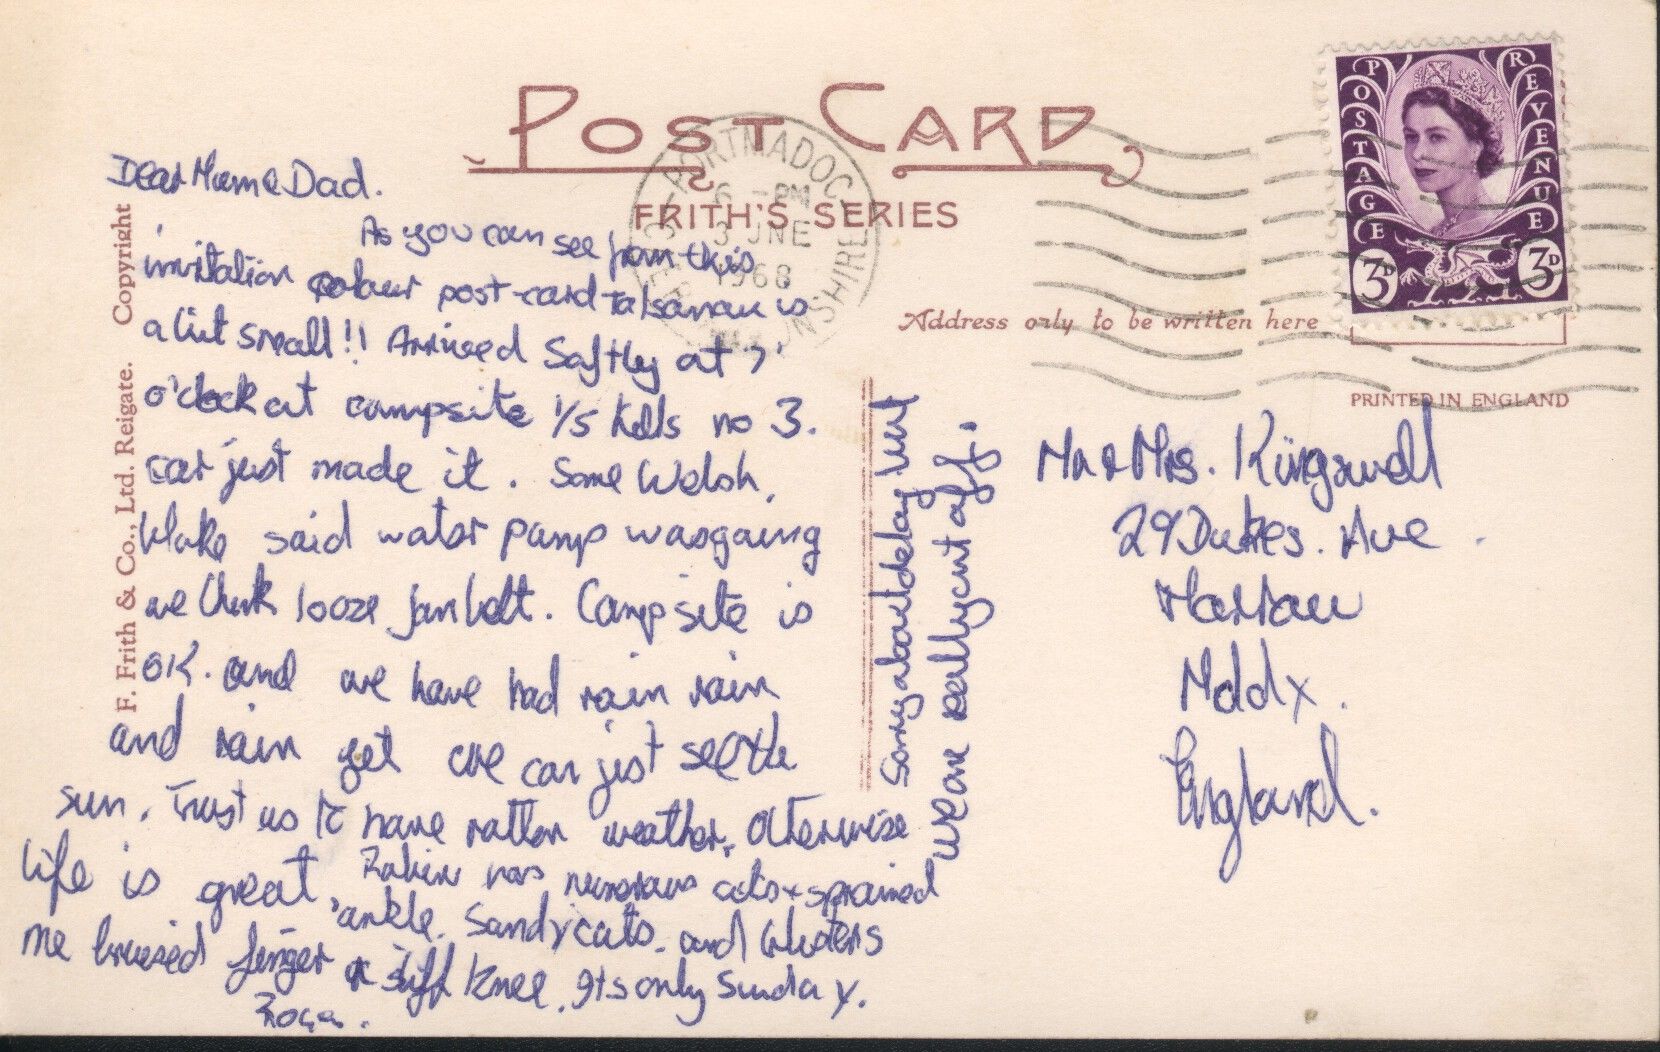 POST CARD
FRITH'S SERIES
PORTMADOC
6 - PM
3 JNE
1968
POSTAGE REVENUE
3D 3D
Address only to be written here
PRINTED IN ENGLAND
F. Frith & Co., Ltd. Reigate. Copyright
Dear Mum & Dad.
As you can see from this
invitation colour post-card talsarnau is
a bit small!! Arrived Saftly at 7
o'clock at campsite 1/5 hells no 3.
car just made it. Some Welsh
bloke said water pump was going
we think looze fan belt. Campsite is
OK. and we have had rain rain
and rain yet we can just see the
sun. Trust us to have rotten weather. Otherwise
life is great. Robin has numerous cuts & sprained
ankle. Sandy cuts. and blisters
me bruised finger & stiff knee. Its only Sunday.
Roger.
Sorry about delay but
we are really cut off.
Mr & Mrs. Kingswell
29 Dukes. Ave
Harrow
Middx.
England.